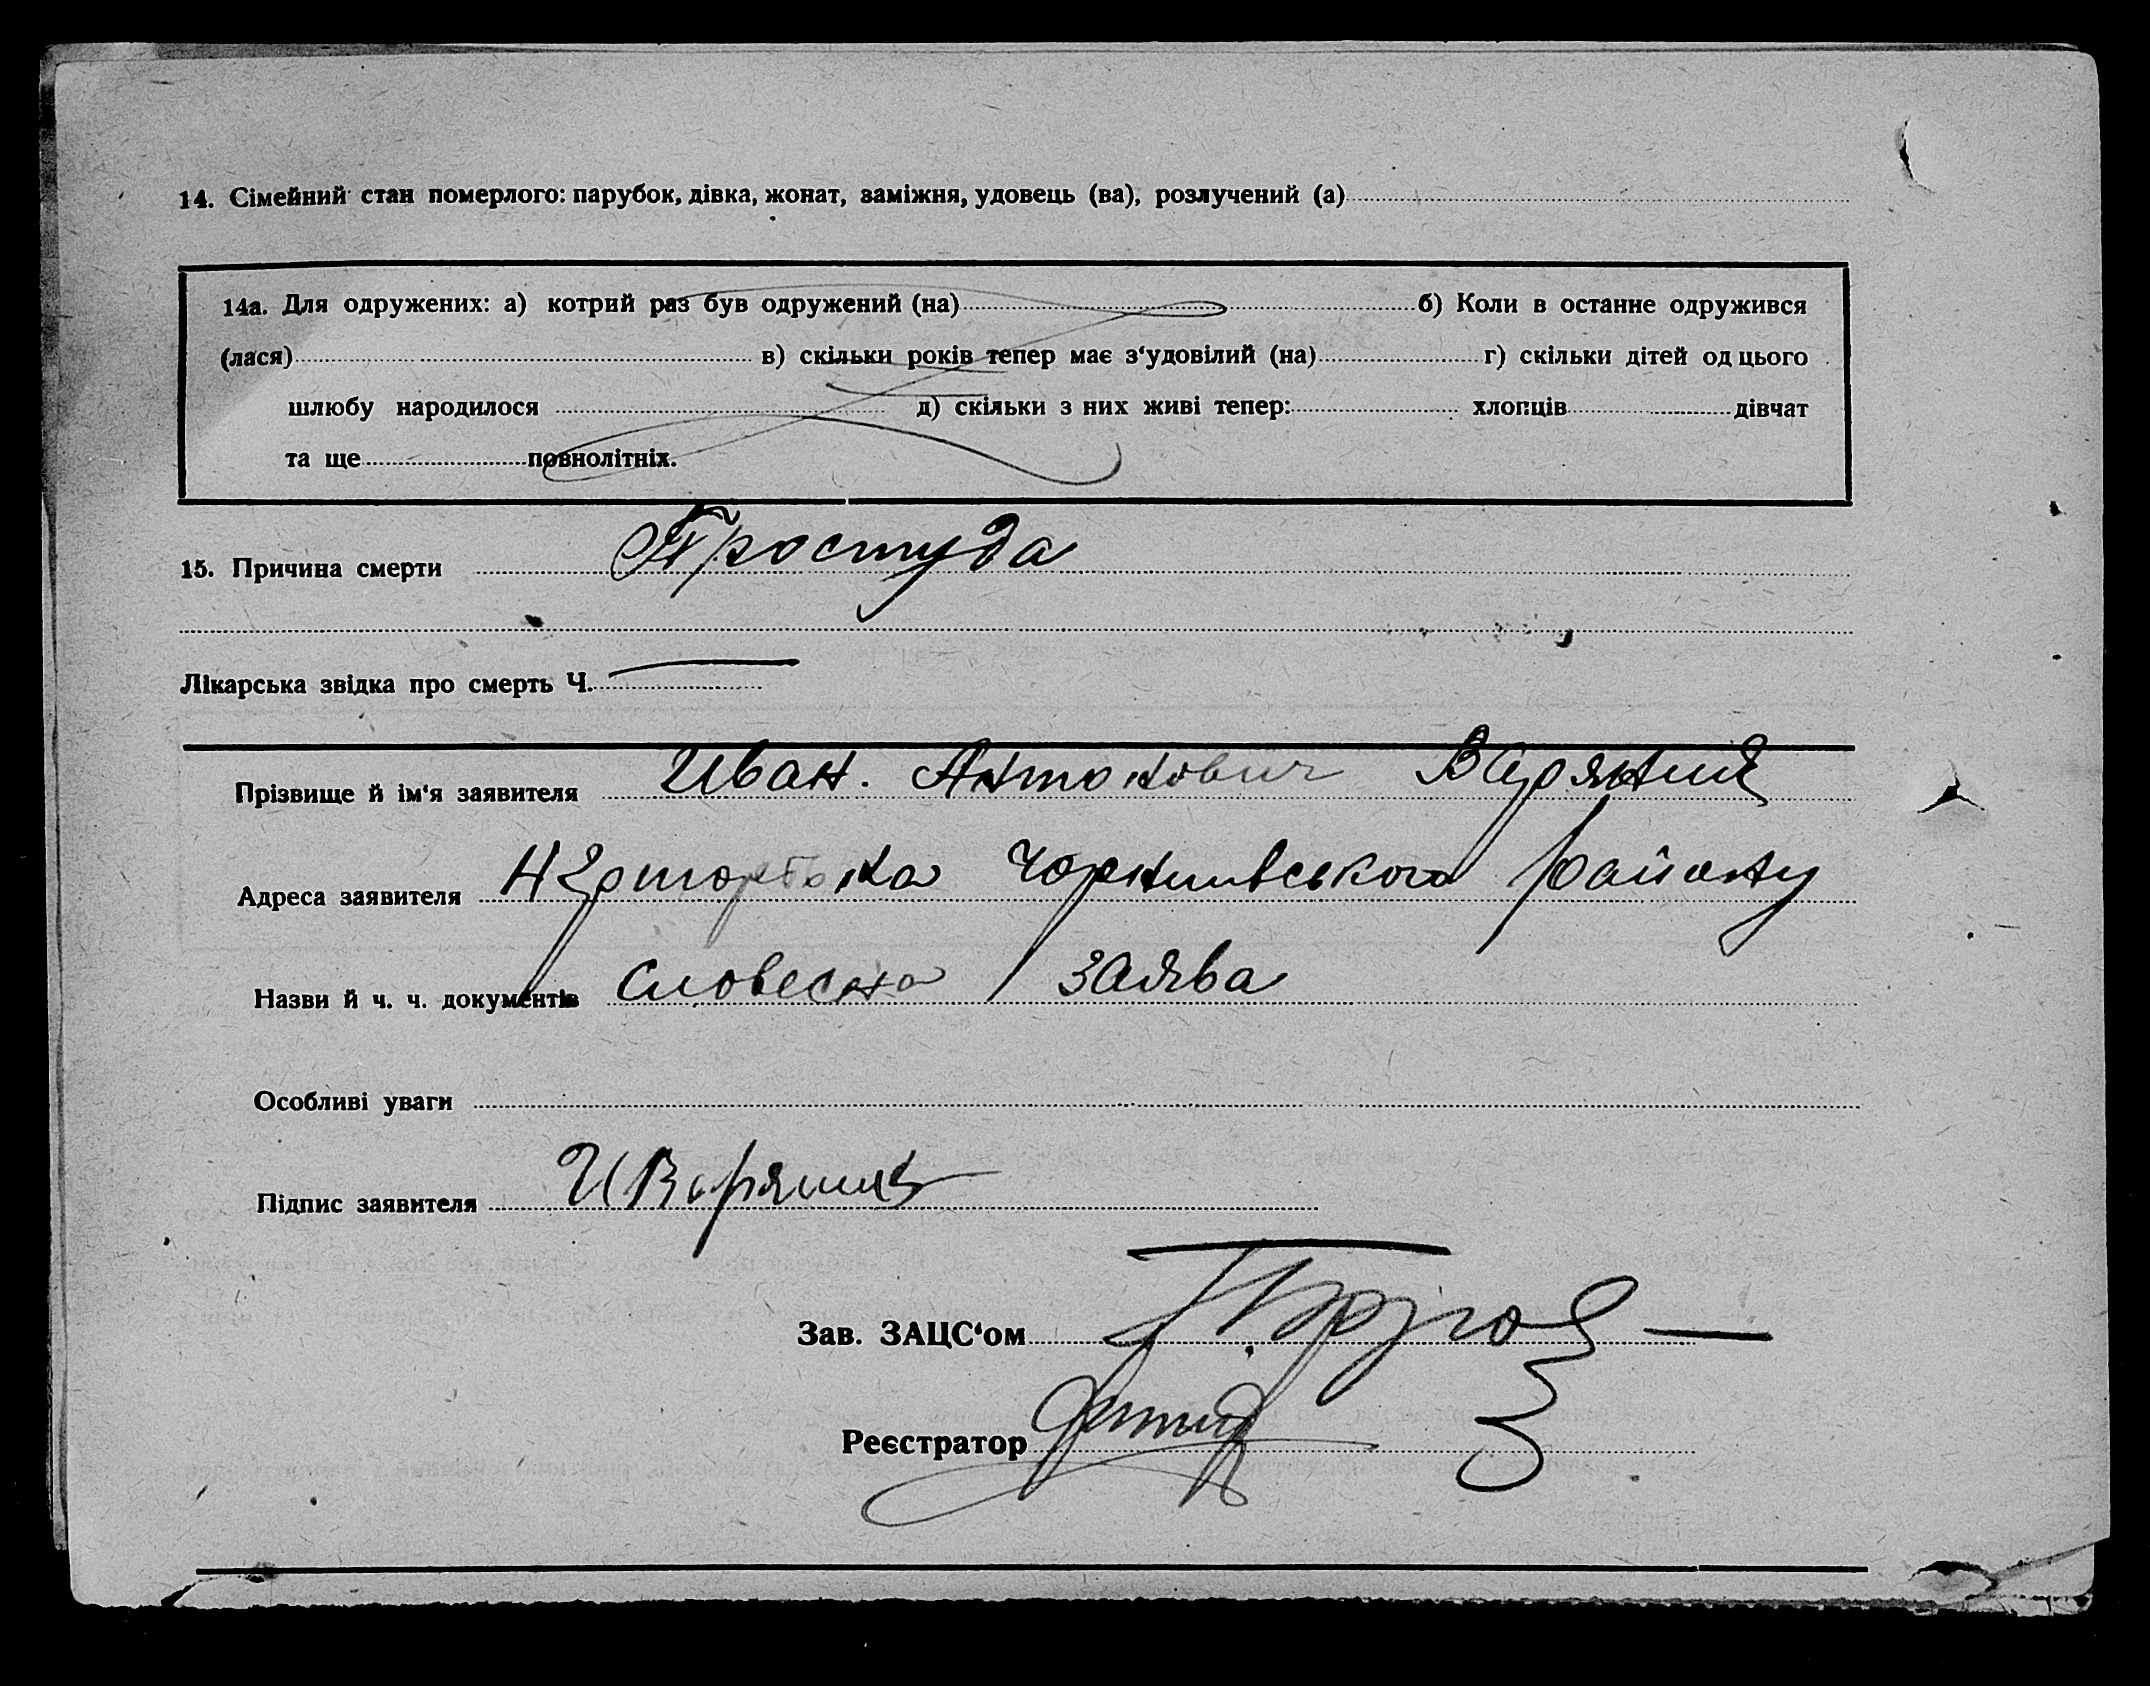 14. Сімейний стан померлого: парубок, дівка, жонат, заміжня, удовець (ва), розлучений (а)
14а. Для одружених: а) котрий раз був одружений (на) б) Коли в останне одружився
(лася) в) скільки років тепер має з‘удовілий (на) г) скільки дітей од цього
шлюбу народилося д) скільки з них живі тепер: хлопців дівчат
та ще повнолітніх.
15. Причина смерти Простуда
Лікарська звідка про смерть Ч.
Прізвище й ім‘я заявителя Иван. Антонович
Адреса заявителя району
Назви й ч. ч. документів словесна заява
Особливі уваги
Підпис заявителя
Зав. ЗАЦС‘ом
Реєстратор